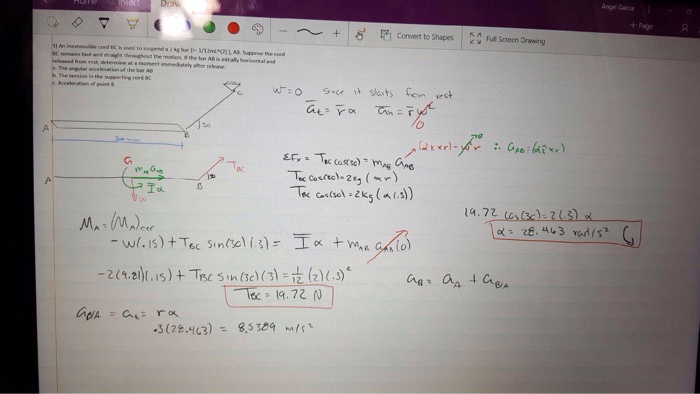 Home Insert Draw
Angel Garcia
+ Page
Convert to Shapes
Full Screen Drawing
1) An inextensible cord BC is used to suspend a 2 kg bar (I= 1/12mL^(2)) AB. Suppose the cord
BC remains taut and straight throughout the motion. If the bar AB is initially horizontal and
released from rest, determine at a moment immediately after release:
a. The angular acceleration of the bar AB
b. The tension in the supporting cord BC
c. Acceleration of point B
C
W=0 since it starts from rest
a̅t = r̅α a̅n = r̅ω² 0
A
30
B
300 mm
G
A
mAB aAB
Iα
W
B
30
TBC
ΣFx = TBC cos(30) = mAB aAB
TBC cos(30) = 2kg (αr)
TBC cos(30) = 2kg (α(.3))
(α x r) - ω²r 0 ∴ aAB = (α x r)
19.72 cos(30) = 2(.3) α
α = 28.463 rad/s²
MA = (MA)eff
-W(.15) + TBC sin(30)(.3) = I̅α + mAB aAB(0)
-2(9.81)(.15) + TBC sin(30)(.3) = 1/12 (2)(.3)²
TBC = 19.72 N
aB = aA + aB/A
aB/A = at = rα
.3(28.463) = 8.5389 m/s²